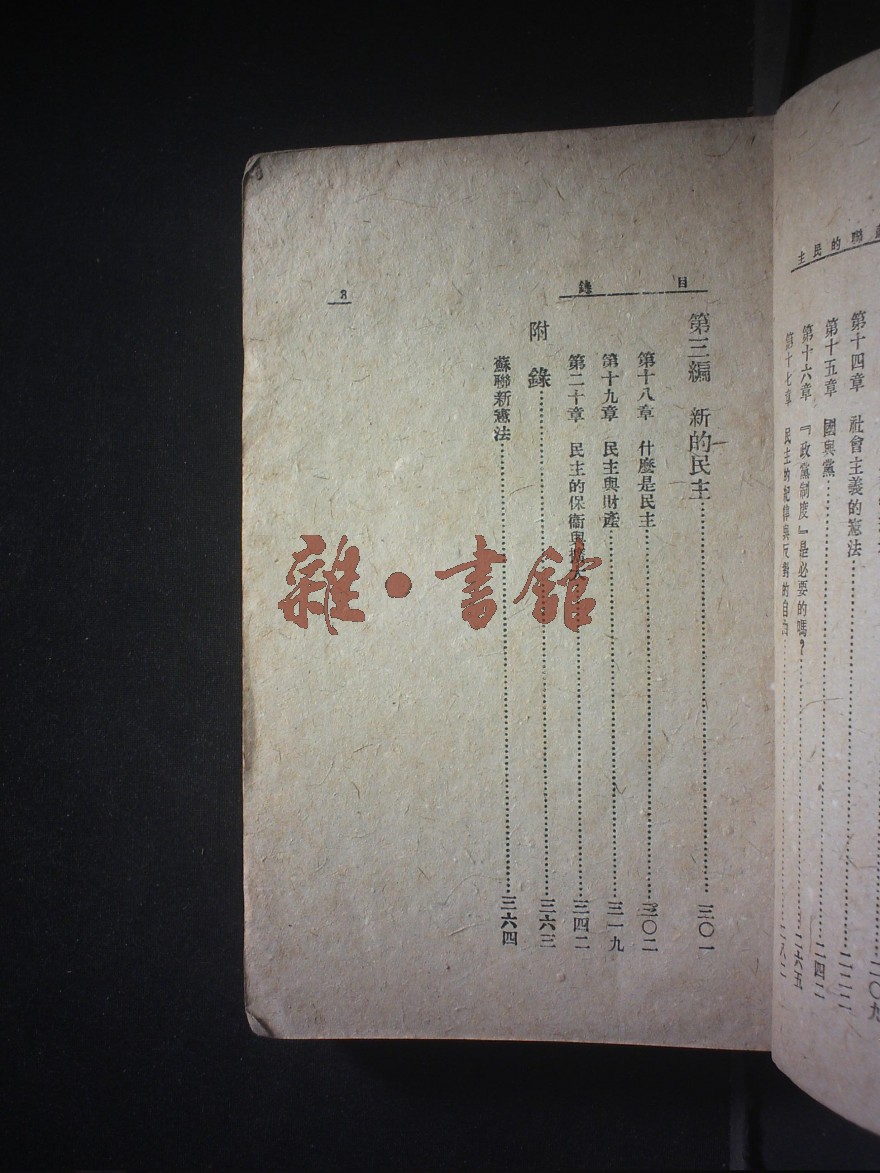 聯的民主
二〇九
第十四章 社會主義的憲法……二二二
第十五章 國與黨……二四二
第十六章 『政黨制度』是必要的嗎？……二六五
第十七章 民主的紀律與反對的自……二八二
目錄
第三編 新的民主……三〇一
第十八章 什麼是民主……三〇二
第十九章 民主與財產……三一九
第二十章 民主的保衞與擴大……三四二
附錄……三六三
蘇聯新憲法……三六四
3
雜·書館